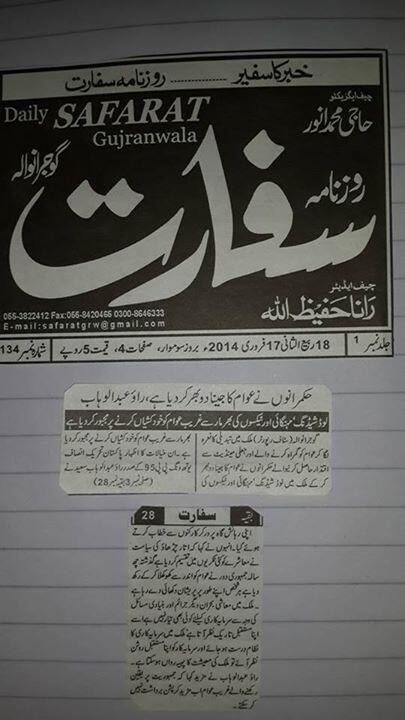 خبر کا سفیر ............... روزنامہ سفارت
Daily SAFARAT
Gujranwala
گوجرانوالہ
چیف ایگزیکٹو
حاجی محمد انور
روزنامہ
سفارت
چیف ایڈیٹر
رانا حفیظ اللہ
055-3822412 Fax:055-8420465 0300-8646333
E-mail:safaratgrw@gmail.com
جلد نمبر 1
18 ربیع الثانی 17 فروری 2014ء بروز سوموار، صفحات 4، قیمت 5 روپے
شمارہ نمبر 134
حکمرانوں نے عوام کا جینا دوبھر کر دیا ہے، راؤ عبدالوہاب
لوڈ شیڈنگ، مہنگائی اور ٹیکسوں کی بھرمار سے غریب عوام کو خودکشیاں کرنے پر مجبور کر دیا ہے
گوجرانوالہ (سٹاف رپورٹر) ملک میں تبدیلی کا نعرہ
لگا کر عوام کو گمراہ کرنے والے اور جعلی مینڈیٹ سے
اقتدار حاصل کرنیوالے حکمرانوں نے عوام کا جینا دوبھر
کر کے ملک میں لوڈ شیڈنگ، مہنگائی اور ٹیکسوں کی
بھرمار سے غریب عوام کو خودکشیاں کرنے پر مجبور کر دیا
ہے۔ ان خیالات کا اظہار پاکستان تحریک انصاف
یوتھ ونگ پی پی 95 کے صدر راؤ عبدالوہاب سعید نے
(صفحہ نمبر 3 بقیہ نمبر 28)
بقیہ سفارت 28
اپنی رہائش گاہ پر ورکر کارکنوں سے خطاب کرتے
ہوئے کیا۔ انہوں نے کہا کہ اتار چڑھاؤ کی سیاست
نے معاشرے کو کئی ٹکڑیوں میں تقسیم کر دیا ہے گذشتہ چھ
سالہ جمہوری دور نے عوام کو اندر سے کھوکھلا کر کے رکھ
دیا ہے ہر شخص اپنے طور پر پریشان دکھائی دے رہا ہے
ملک میں معاشی بحران دیگر جرائم اور بنیادی مسائل
کی وجہ سے سرمایہ کاری کیلئے کوئی بھی تیار نہیں ہے اسے
اپنا مستقبل تاریک نظر آتا ہے ملک میں سرمایہ کاری کا
نظام درست ہو جائے اور سرمایہ کار کو اپنا مستقبل روشن
نظر آئے تو ملک کی معیشت کا پہیہ رواں ہو سکتا ہے۔
راؤ عبدالوہاب نے مزید کہا کہ جمہوریت پر یقین
رکھنے والے غریب عوام اب مزید کرپشن برداشت نہیں
کر سکتے۔